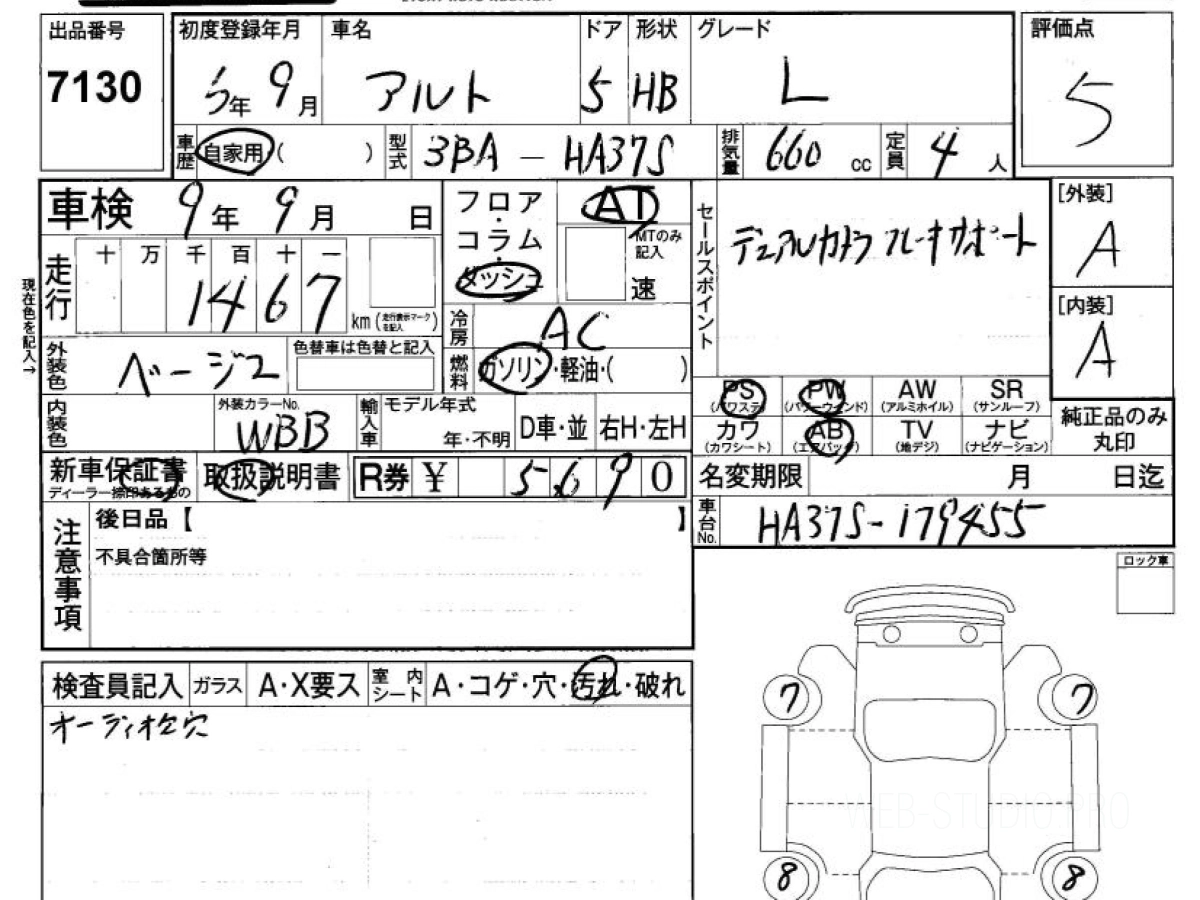 出品番号 初度登録年月 車名 ドア 形状 グレード 評価点
7130 5年 9月 アルト 5 HB L 5
車歴 自家用( ) 型式 3BA - HA37S 排気量 660 cc 定員 4 人
車検 9年 9月 日
フロア・コラム・ダッシュ AT
MTのみ記入
速
セールスポイント デュアルカメラブレーキサポート
[外装]
A
[内装]
A
現在色を記入→
走行 十 万 千 百 十 一
1467 km (走行表示マークを記入)
冷房 AC
外装色 ベージュ 色替車は色替と記入
燃料 ガソリン・軽油・( )
PS (パワステ) PW (パワーウインド) AW (アルミホイル) SR (サンルーフ)
カワ (カワシート) AB (エアバッグ) TV (地デジ) ナビ (ナビゲーション)
純正品のみ丸印
内装色 外装カラーNo. WBB 輸入車 モデル年式 年・不明 D車・並 右H・左H
新車保証書 ディーラー捺印あるもの 取扱説明書 R券 ¥ 5690
名変期限 月 日迄
車台No. HA37S-179455
注意事項 後日品【 】
不具合箇所等
ロック車
検査員記入 ガラス A・X要ス 室内シート A・コゲ・穴・汚れ・破れ
オーディオ欠穴
7 7
WEB-STUDIO.PRO
8 8